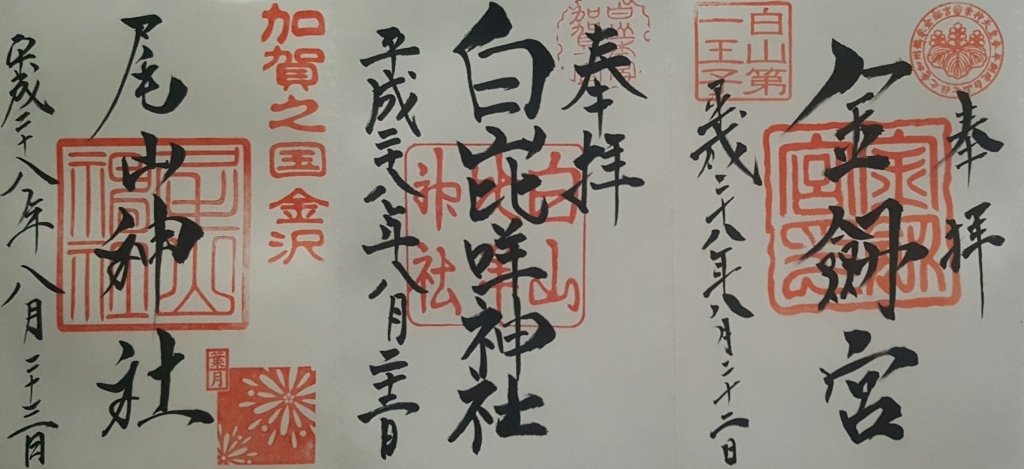 奉拝
白山第
一王子
金劔宮
平成二十八年八月二十二日
奉拝
白山比咩神社
白山
比咩
神社
平成二十八年八月二十三日
加賀之国 金沢
尾山神社
葉月
平成二十八年八月二十三日